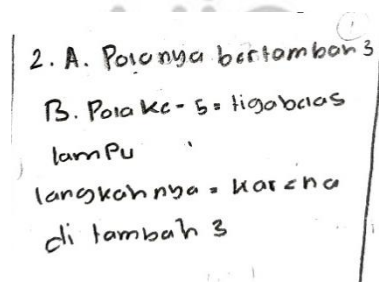 2. A. Polanya bertambah 3
B. Pola ke-5 = tigabelas
lampu
langkahnya = karena
di tambah 3